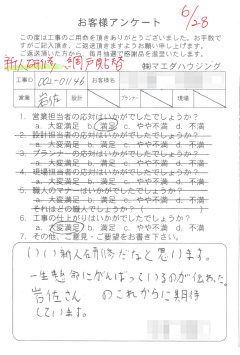 お客様アンケート
6/28
この度は工事のご用命を頂きありがとうございました。お手数で
すがご記入頂き、ご返送頂きますようお願い申し上げます。
ご返送頂いた方から、毎月抽選で感謝品を進呈いたします。
新人研修 網戸貼替
㈱マエダハウジング
工事ID 001-01146 お客様名
営業 岩佐 設計 プランナー 現場
1. 営業担当者の応対はいかがでしたでしょうか？
a. 大変満足 b. 満足 c. やや不満 d. 不満
2. 設計担当者の応対はいかがでしたでしょうか？
a. 大変満足 b. 満足 c. やや不満 d. 不満
3. プランナーの応対はいかがでしたでしょうか？
a. 大変満足 b. 満足 c. やや不満 d. 不満
4. 現場担当者の応対はいかがでしたでしょうか？
a. 大変満足 b. 満足 c. やや不満 d. 不満
5. 職人のマナーはいかがでしたでしょうか？
それはどの職人でしょうか？（ ）
a. 大変満足 b. 満足 c. やや不満 d. 不満
6. 工事の仕上がりはいかがでしたでしょうか？
a. 大変満足 b. 満足 c. やや不満 d. 不満
7. その他、ご意見・ご要望をお書き下さい。
いい新人研修だなと思います。
一生懸命にがんばっているのが伝わった。
岩佐さん のこれからに期待
しています。